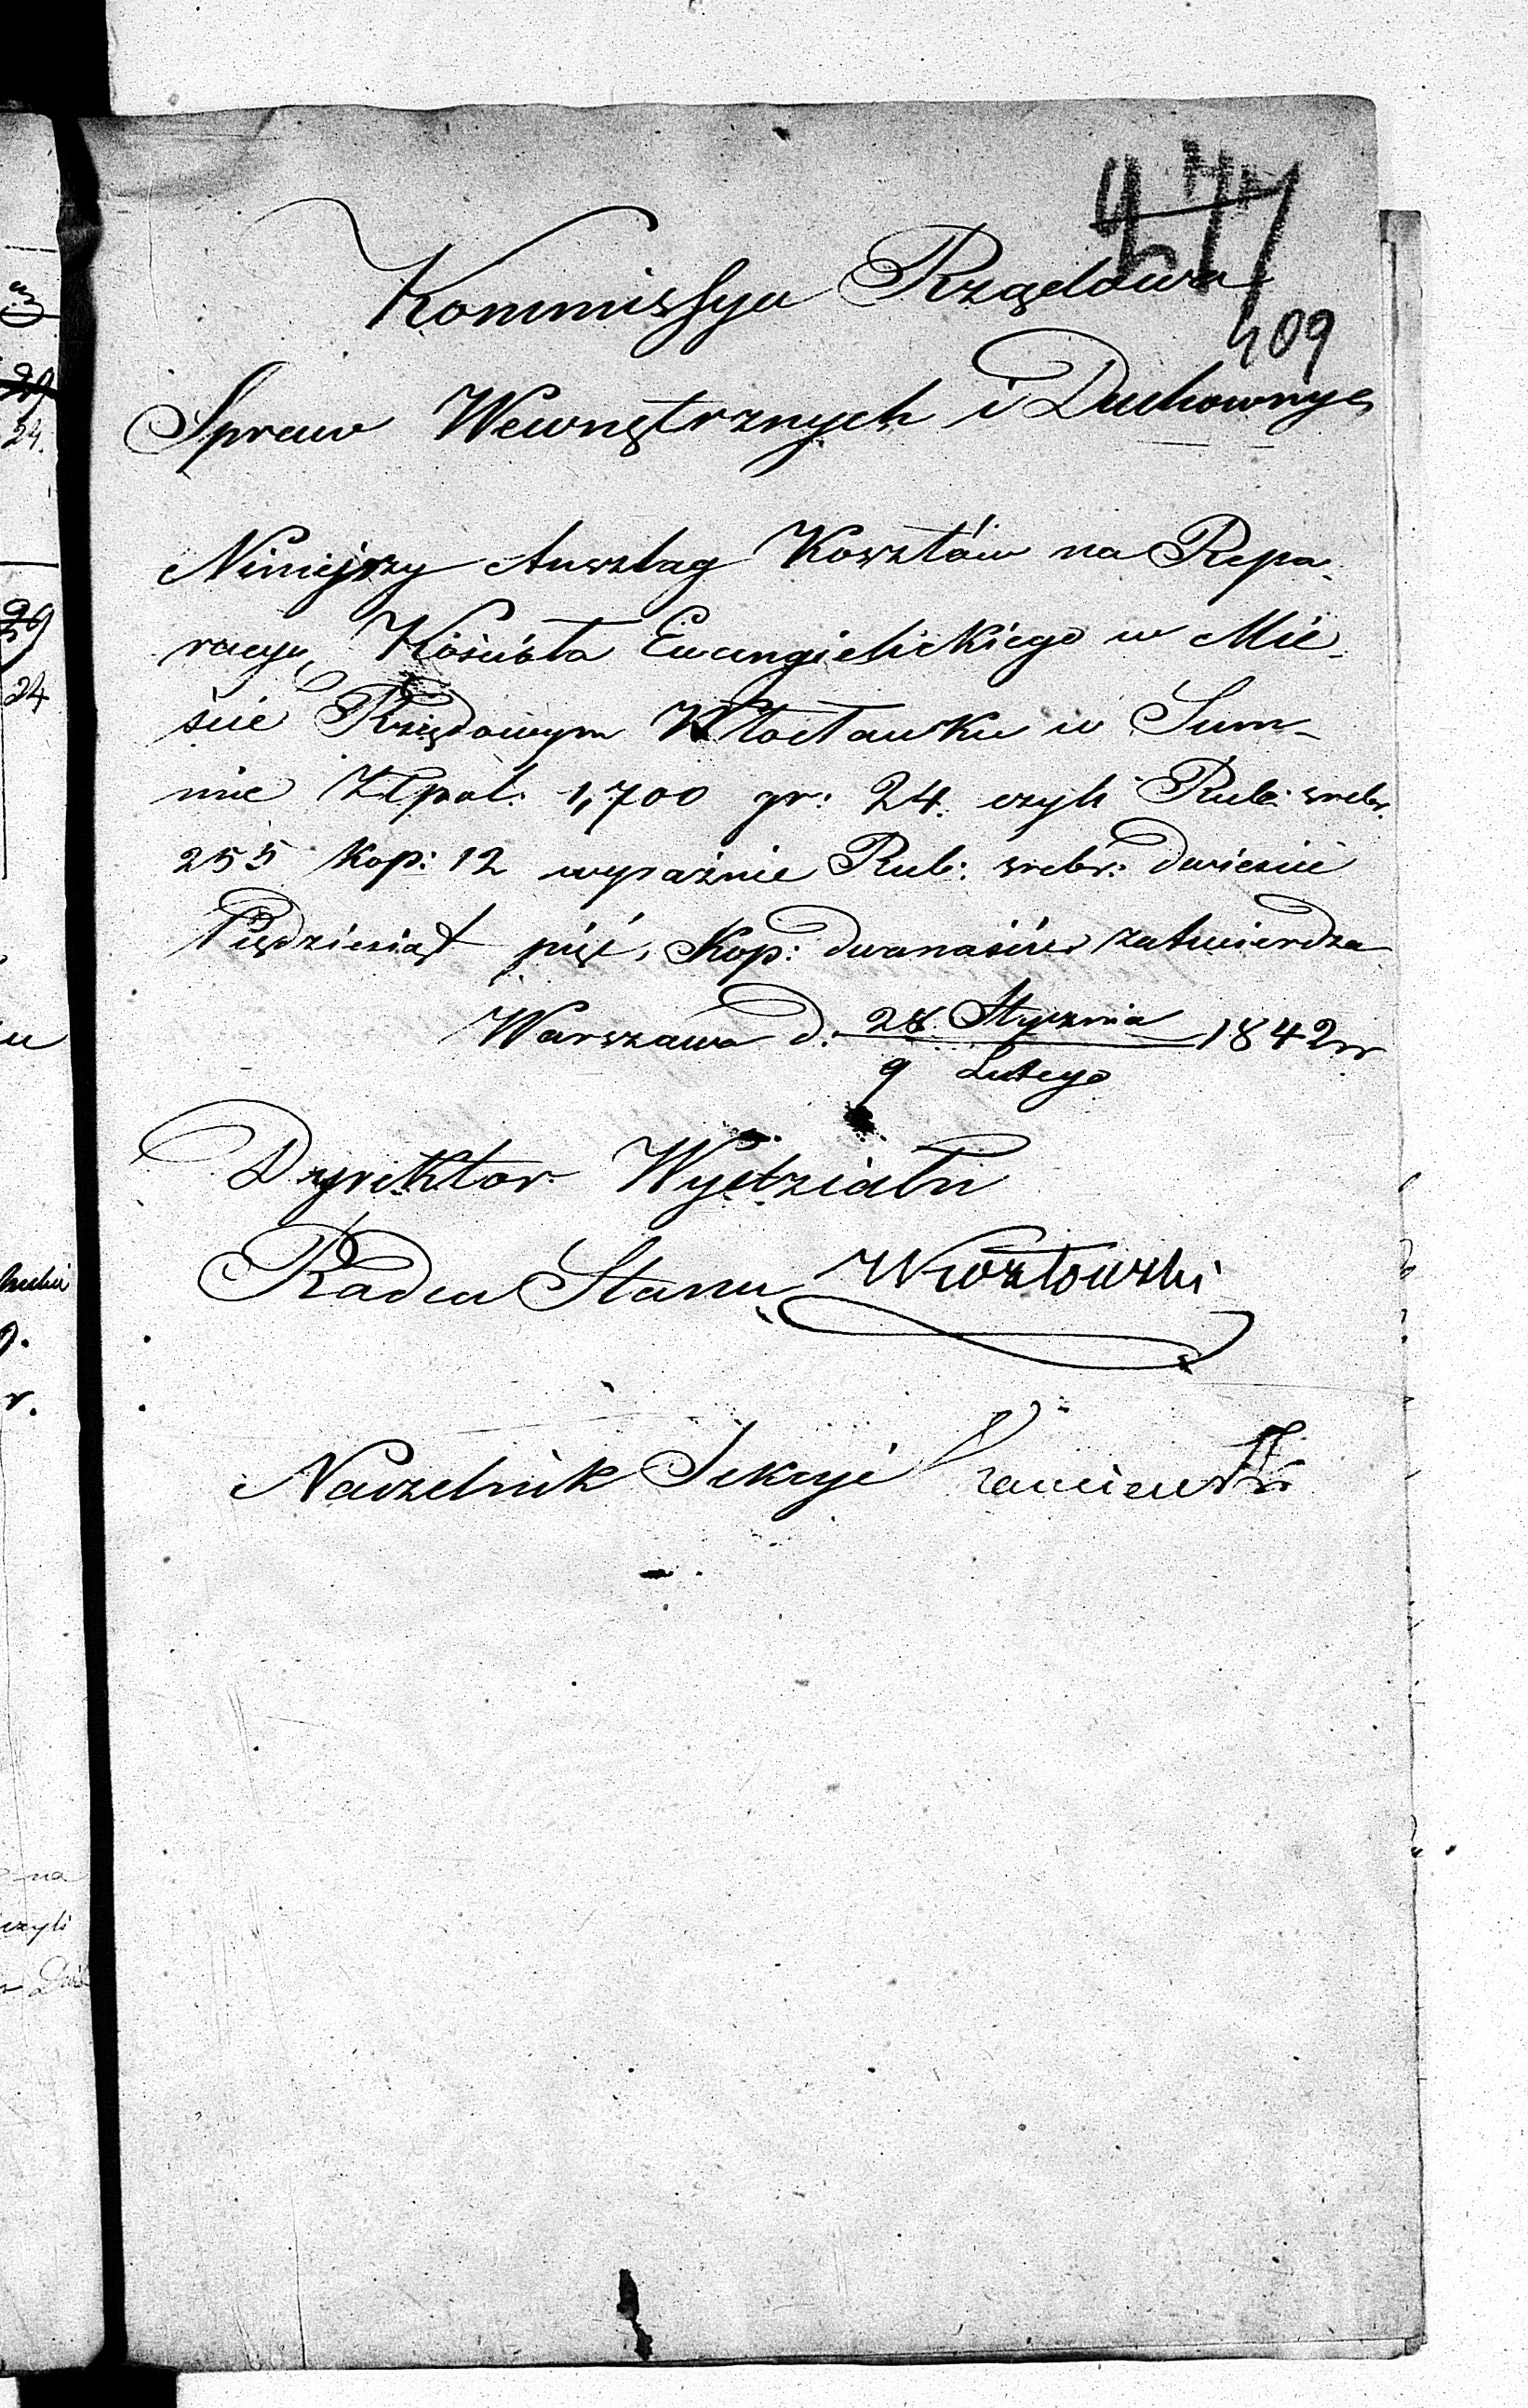 277
409
Kommissya Rządowa
Spraw Wewnętrznych i Duchownych
Niniejszy Anszlag Kosztów na Repa-
racyę Kościoła Ewangielickiego w Mie-
ście Rządowym Włocławku w Sum-
mie Złpol: 1,700 gr: 24. czyli Rub: srebr.
255 Kop: 12 wyraźnie Rub: srebr: dwieście
Pięćdziesiąt pięć, Kop: dwanaście zatwierdza
Warszawa d. 28. Stycznia 1842 r
9 Lutego
Dyrektor Wydziału
Radca Stanu Kozłowski
Naczelnik Sekcyi